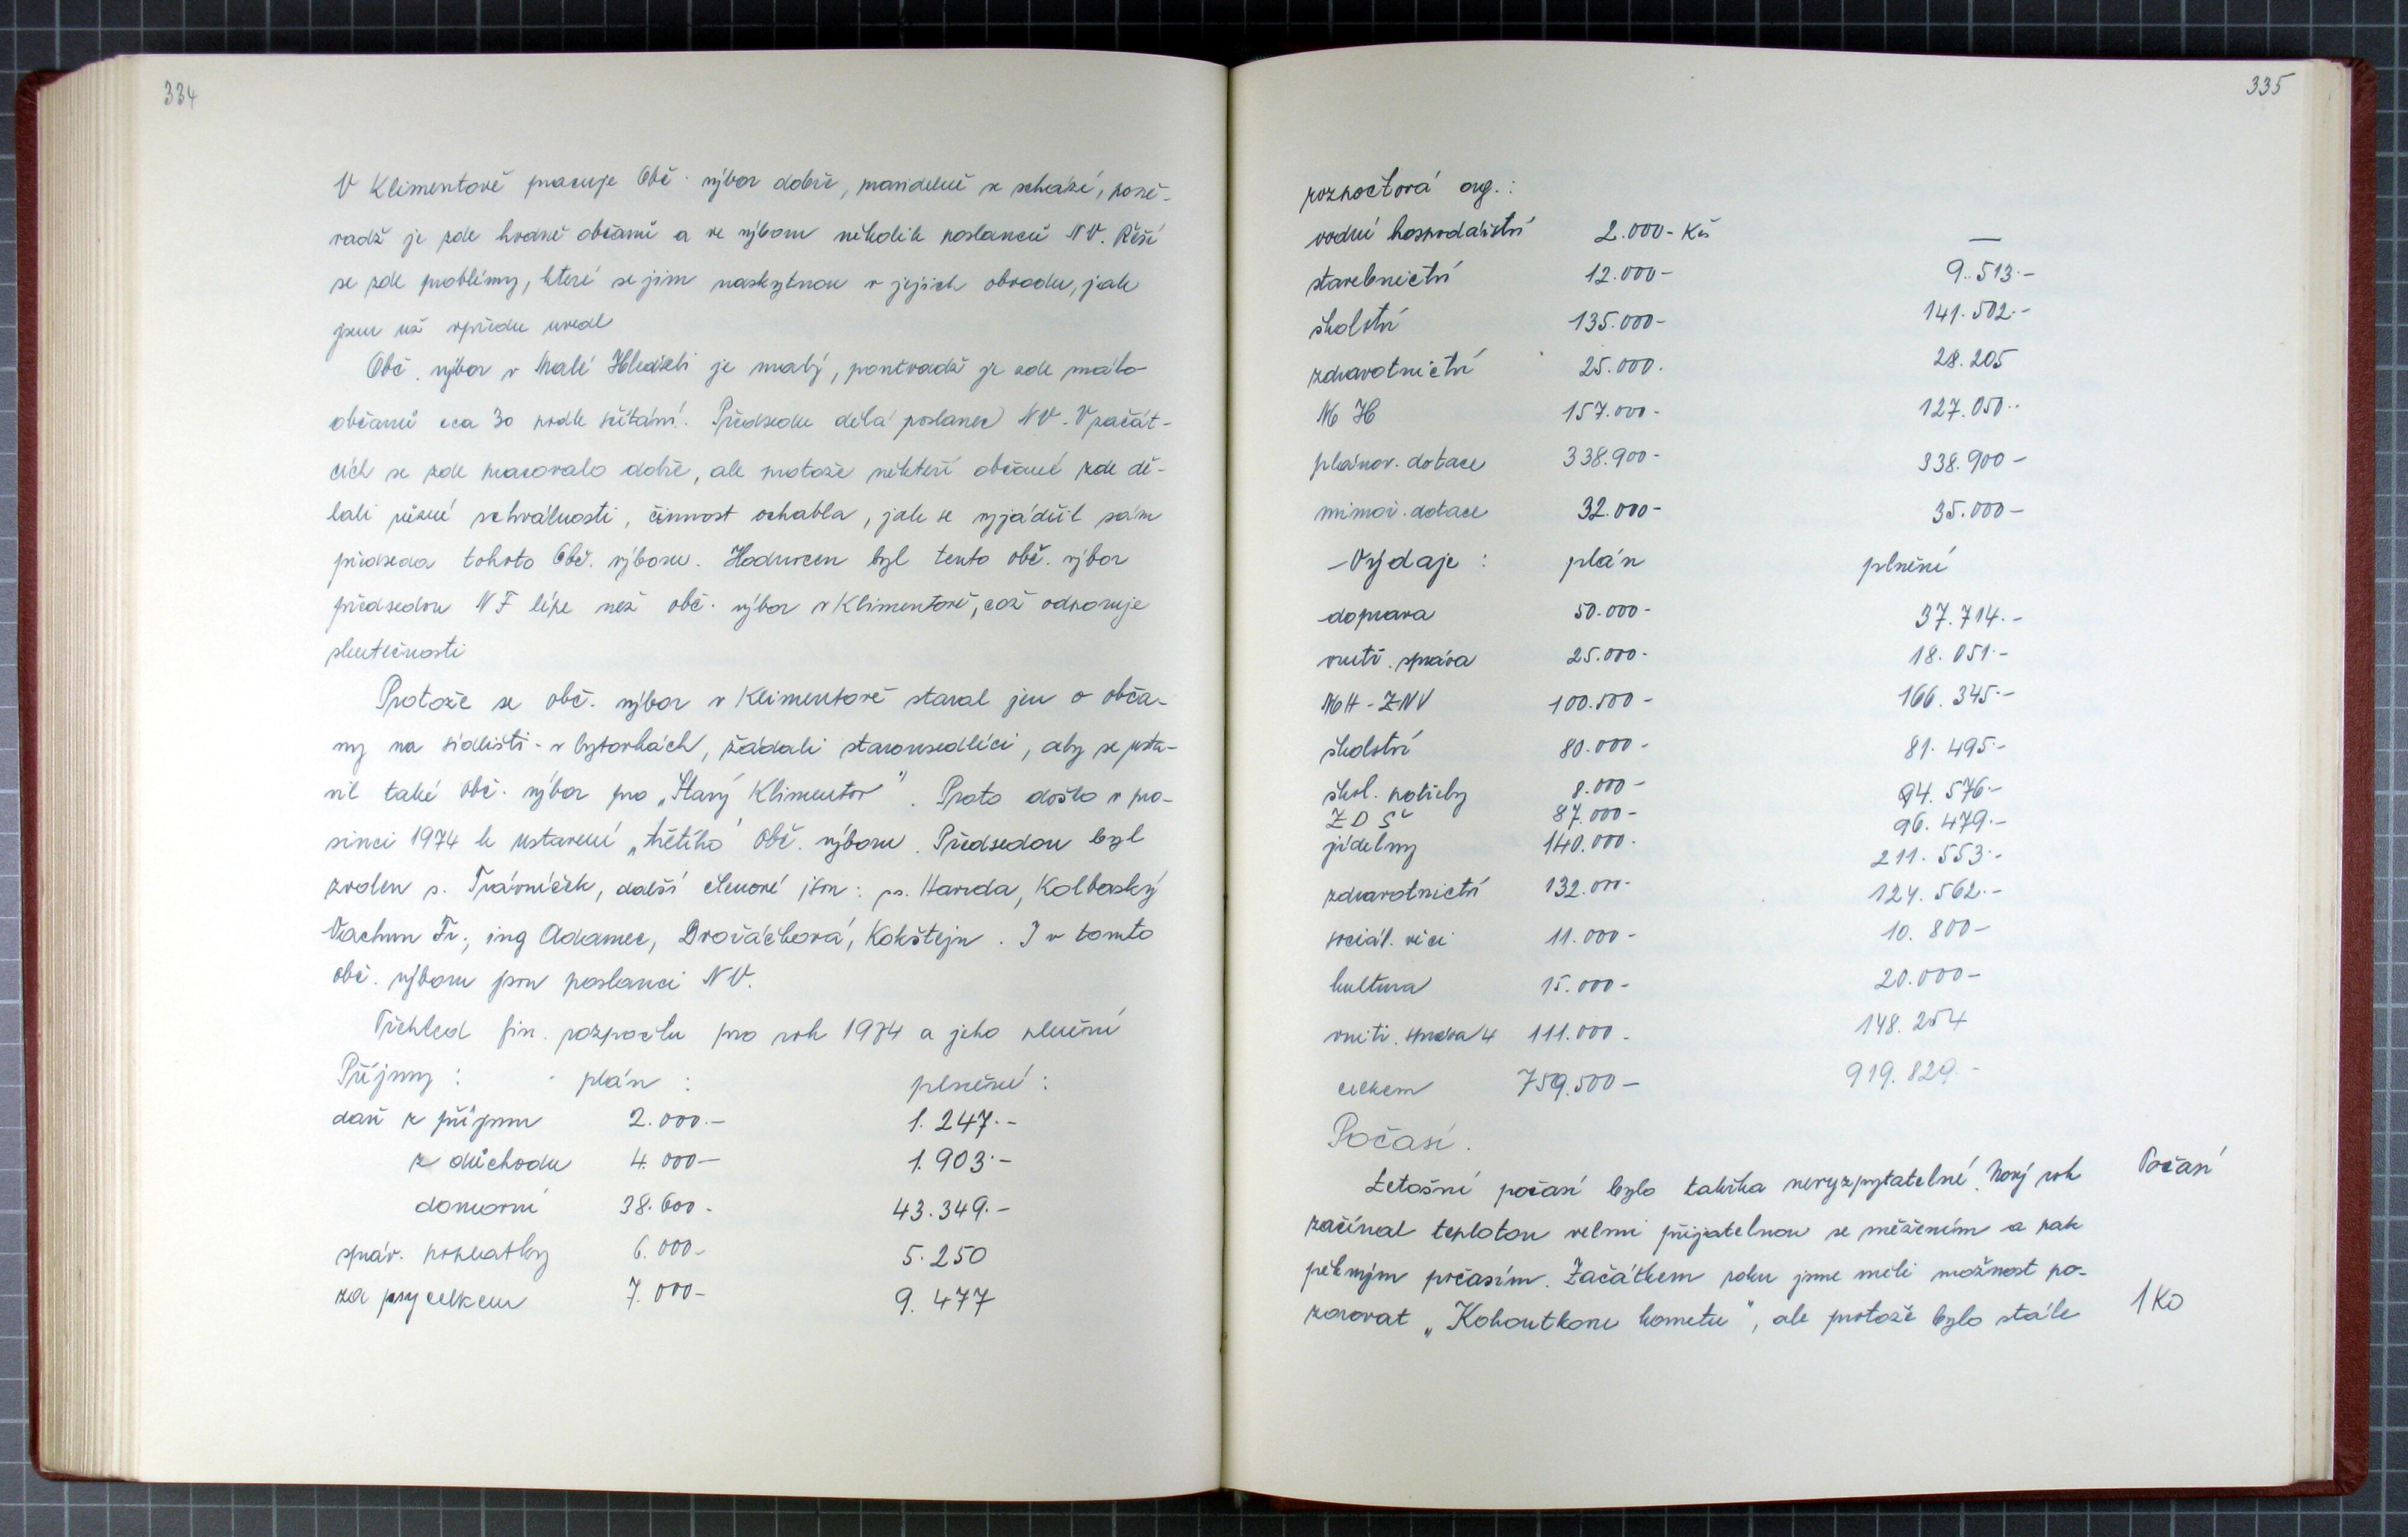 334
V Klimentově pracuje Obč. výbor dobře, pravidelně se schází, poně-
vadž je zde hodně občanů a ve výboru několik poslanců NV. Řeší
se zde problémy, které se jim naskytnou v jejich obvodu, jak
jsem už vpředu uvedl
Obč. výbor v Malé Hleďsebi je malý, poněvadž je zde málo
občanů cca 30 podle sčítání. Předsedu dělá poslanec NV. V začát-
cích se zde pracovalo dobře, ale protože někteří občané zde dě-
lali různé schválnosti, činnost ochabla, jak se vyjádřil sám
předseda tohoto Obč. výboru. Hodnocen byl tento obč. výbor
předsedou NF lépe než obč. výbor v Klimentově, což odporuje
skutečnosti
Protože se obč. výbor v Klimentově staral jen o obča-
ny na sídlišti - v bytovkách, žádali starousedlíci, aby se usta-
vil také obč. výbor pro „Starý Klimentov". Proto došlo v pro-
sinci 1974 k ustavení „třetího" Obč. výboru. Předsedou byl
zvolen s. Trávníček, další členové jsou: ss. Harvda, Kolbaský
Vachun Fr., ing Adamec, Drováčková, Kokštejn. I v tomto
obč. výboru jsou poslanci NV.
Přehled fin. rozpočtu pro rok 1974 a jeho plnění
Příjmy: plán: plnění:
daň z příjmu 2.000.- 1.247.-
z důchodu 4.000- 1.903.-
domovní 38.600. 43.349.-
správ. poplatky 6.000- 5.250
za psy celkem 7.000- 9.477
335
rozpočtová org.:
vodní hospodářství 2.000- Kčs —
stavebnictví 12.000- 9.513.-
školství 135.000- 141.502.-
zdravotnictví 25.000. 28.205
M H 157.000- 127.050.-
plánov. dotace 338.900- 338.900-
mimoř. dotace 32.000- 35.000-
Výdaje: plán plnění
doprava 50.000- 37.714.-
vnitř. správa 25.000- 18.051.-
MH-ZNV 100.500- 166.345.-
školství 80.000- 81.495.-
škol. potřeby 8.000- 94.576.-
ZDŠ 87.000- 96.479.-
jídelny 140.000. 211.553.-
zdravotnictví 132.000- 124.562.-
sociál. věci 11.000- 10.800-
kultura 15.000- 20.000-
vnitř. správa 4 111.000. 148.254
celkem 759.500- 919.829.-
Počasí.
Letošní počasí bylo takřka nevyzpytatelné. Nový rok Počasí
začínal teplotou velmi přijatelnou se sněžením a pak
pěkným počasím. Začátkem roku jsme měli možnost po-
zorovat „Kohoutkovu kometu", ale protože bylo stále 1 Ko